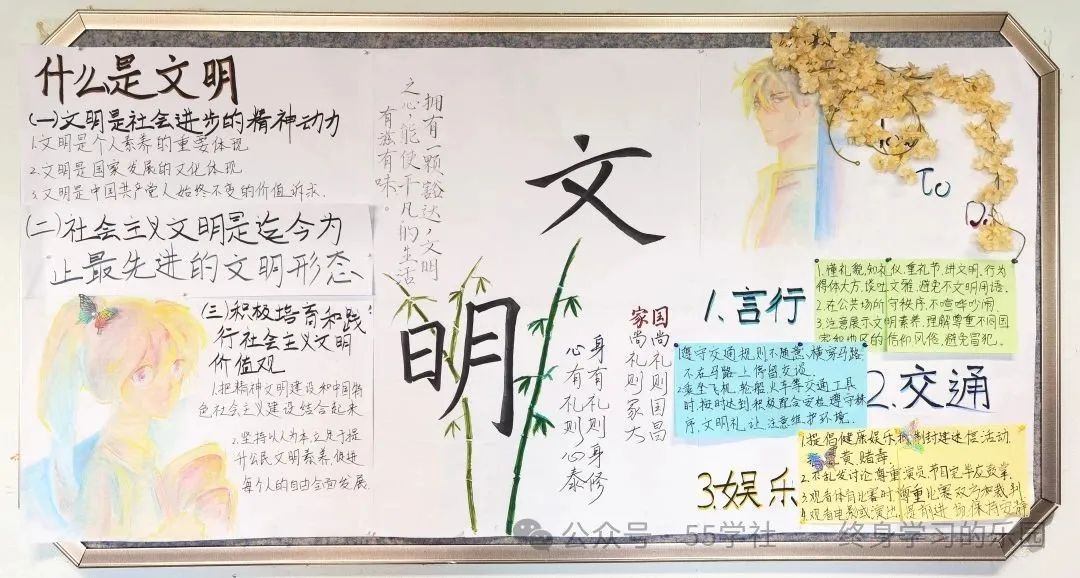 什么是文明
(一)文明是社会进步的精神动力
1.文明是个人素养的重要体现
2.文明是国家发展的文化体现
3.文明是中国共产党人始终不变的价值诉求.
(二)社会主义文明是迄今为
止最先进的文明形态
(三)积极培育和践
行社会主义文明
价值观
1.把精神文明建设和中国特
色社会主义建设结合起来
2.坚持以人为本,立足于提
升公民文明素养,促进
每个人的自由全面发展.
拥有一颗豁达,文明
之心,能使平凡的生活
有滋有味。
文
明
国尚礼则国昌
家尚礼则家大
身有礼则身修
心有礼则心泰
How
To
Do
1.言行
1.懂礼貌,知礼仪,重礼节,讲文明,行为
得体大方,谈吐文雅,避免不文明用语.
2.在公共场所守秩序,不喧哗吵闹.
3.注意展示文明素养,理解尊重不同国
家和地区的信仰风俗,避免冒犯.
2.交通
遵守交通规则不随意横穿马路
不在马路上停留交谈.
2.乘坐飞机,轮船,火车等交通工具
时,按时达到积极配合安检,遵守秩
序,文明礼让,注意维护环境.
3.娱乐
1.提倡健康娱乐,抵制封建迷信活动,
黄赌毒.
2.不乱发讨论,尊重演员,节目完毕友鼓掌.
3.观看体育比赛时,尊重比赛双方和裁判
4.观看电影或演出,提前进场保持安静
公众号 · 55学社——终身学习的乐园